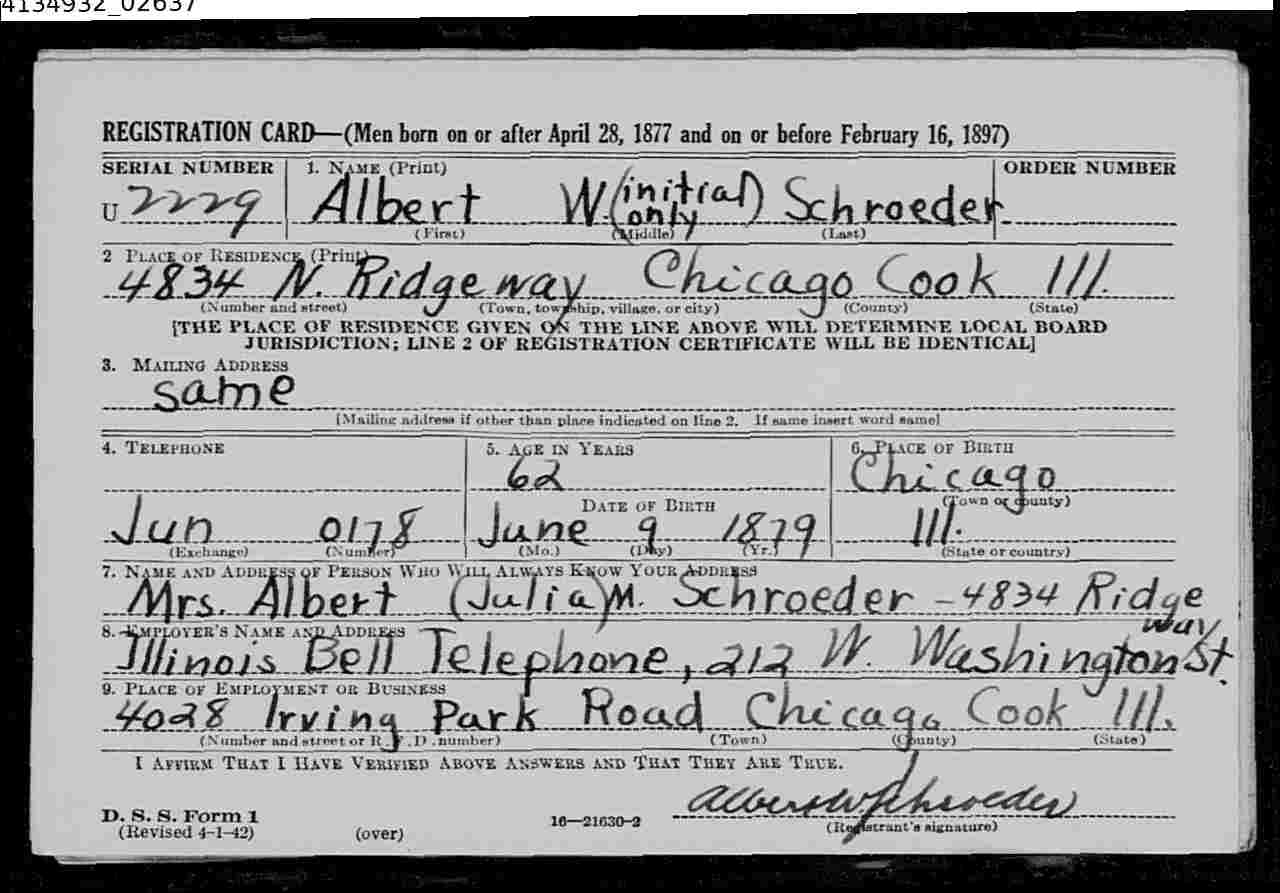 4134932_02637
REGISTRATION CARD—(Men born on or after April 28, 1877 and on or before February 16, 1897)
SERIAL NUMBER 1. NAME (Print) ORDER NUMBER
U 2229 Albert W (initial only) Schroeder
(First) (Middle) (Last)
2 PLACE OF RESIDENCE (Print)
4834 N. Ridgeway Chicago Cook Ill.
(Number and street) (Town, township, village, or city) (County) (State)
[THE PLACE OF RESIDENCE GIVEN ON THE LINE ABOVE WILL DETERMINE LOCAL BOARD
JURISDICTION; LINE 2 OF REGISTRATION CERTIFICATE WILL BE IDENTICAL]
3. MAILING ADDRESS
same
[Mailing address if other than place indicated on line 2. If same insert word same]
4. TELEPHONE 5. AGE IN YEARS 6. PLACE OF BIRTH
62 Chicago
DATE OF BIRTH (Town or county)
Jun 0178 June 9 1879 Ill.
(Exchange) (Number) (Mo.) (Day) (Yr.) (State or country)
7. NAME AND ADDRESS OF PERSON WHO WILL ALWAYS KNOW YOUR ADDRESS
Mrs. Albert (Julia) M. Schroeder - 4834 Ridge
way
8. EMPLOYER'S NAME AND ADDRESS
Illinois Bell Telephone, 212 W. Washington St.
9. PLACE OF EMPLOYMENT OR BUSINESS
4028 Irving Park Road Chicago Cook Ill.
(Number and street or R. F. D. number) (Town) (County) (State)
I AFFIRM THAT I HAVE VERIFIED ABOVE ANSWERS AND THAT THEY ARE TRUE.
Albert W Schroeder
D. S. S. Form 1
(Revised 4-1-42) (over) 16—21630-2 (Registrant's signature)